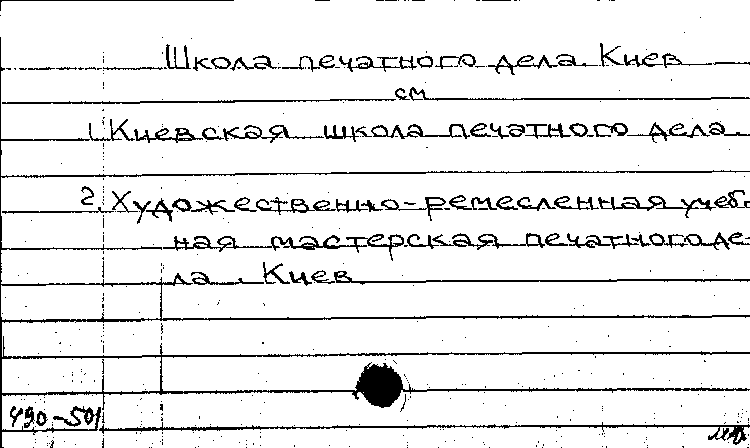 Школа печатного дела. Киев
см
1. Киевская школа печатного дела.
2. Художественно-ремесленная учеб-
ная мастерская печатного де-
ла. Киев
490-501